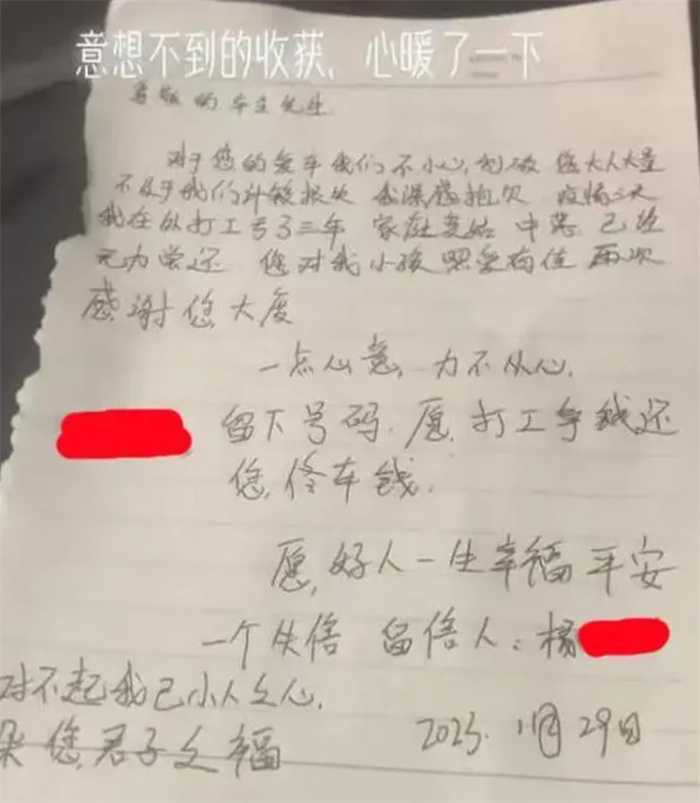 意想不到的收获,心暖了一下
尊敬的车主先生
对于您的爱车我们不小心,刮破 您大人大量
不及于我们计较损失 我深感抱欠 疫情三天
我在外打工亏了三年 家庭变姑 中落 已经
无力尝还 您对我小孩照爱有佳 再次
感谢您大度
一点心意,力不从心.
留下号码.愿,打工争钱还
您,修车钱.
愿,好人一生幸福平安
一个失信 留信人:杨
对不起我已小人之心.
您,君子之福
2023. 11月29日